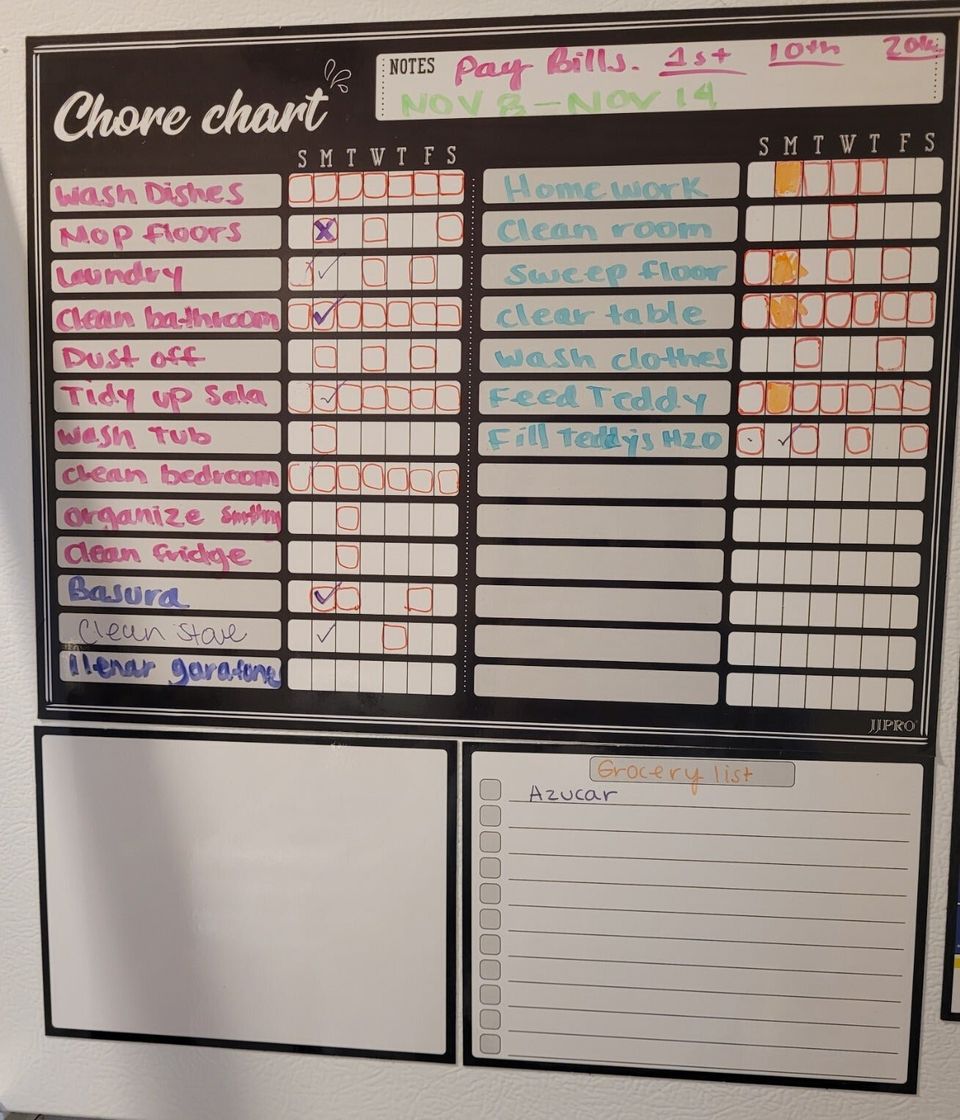 NOTES Pay Bills. 1st 10th 20th
NOV 8 - NOV 14
Chore chart
S M T W T F S
Wash Dishes
Mop floors
Laundry
Clean bathroom
Dust off
Tidy up Sala
Wash Tub
Clean bedroom
Organize
Clean fridge
Basura
Clean Stove
llenar garafone
S M T W T F S
Home work
Clean room
Sweep floor
clear table
Wash clothes
Feed Teddy
Fill Teddy's H2O
JJPRO
Grocery list
Azucar